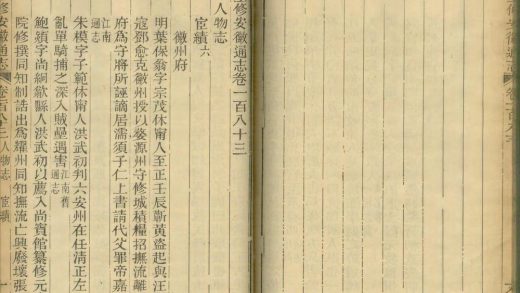 修安徽通志卷一百八十三
人物志
宦績六
徽州府
明葉保翁字宗茂休甯人至正壬辰蘄黃盜起與汪
寇鄧愈克徽州授以婺源州守修城積糧招撫流離
府為守將所誣謫居濡須子仁上書請代父罪帝嘉
江南通志
朱模字子範休甯人洪武初判六安州在任清正左
亂單騎捕之深入賊壘遇害江南舊通志
鮑頖字尚絅歙縣人洪武初以薦入尚賓館纂修元
院修撰同知制誥出為耀州同知撫流亡興廢壞張
修安徽通志 卷百八十三 人物志 宦績 一